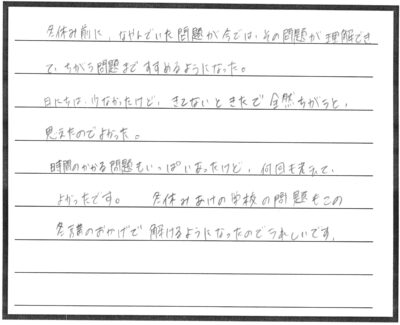 冬休み前に、なやんでいた問題が今では、その問題が理解でき
て、ちがう問題まですすめるようになった。
日にちは、少なかったけど、きてないときたで全然ちがうと、
思えたのでよかった。
時間のかかる問題もいっぱいあったけど、何回も
よかったです。　冬休みあけの学校の問題もこの
冬期のおかげで解けるようになったのでうれしいです。